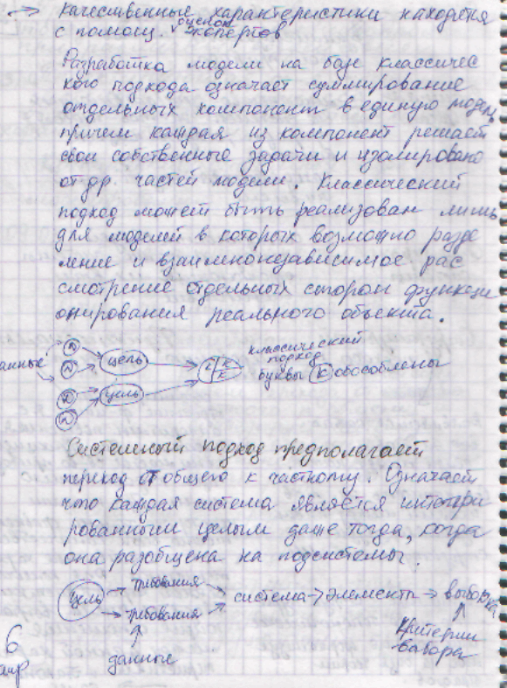 → Качественные характеристики находятся
с помощ. оценок экспертов
Разработка модели на базе классичес
кого подхода означает суммирование
отдельных компонент в единую модель
причем каждая из компонент решает
свои собственные задачи и изолировано
от др. частей модели. Классический
подход может быть реализован лишь
для моделей в которых возможно разде
ление и взаимнонезависимое рас
смотрение отдельных сторон функци
онирования реального объекта.
анные
цель
цель
классический
подход
буквы К обособлены
Системный подход предполагает
переход от общего к частному. Означает
что каждая система является интегри
рованным целым даже тогда, когда
она разобщена на подсистемы.
цель → требования → система → элементы → выборка
требования
данные
критерии
6